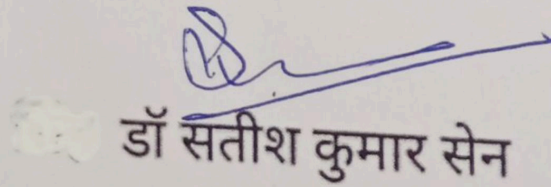 डॉ सतीश कुमार सेन